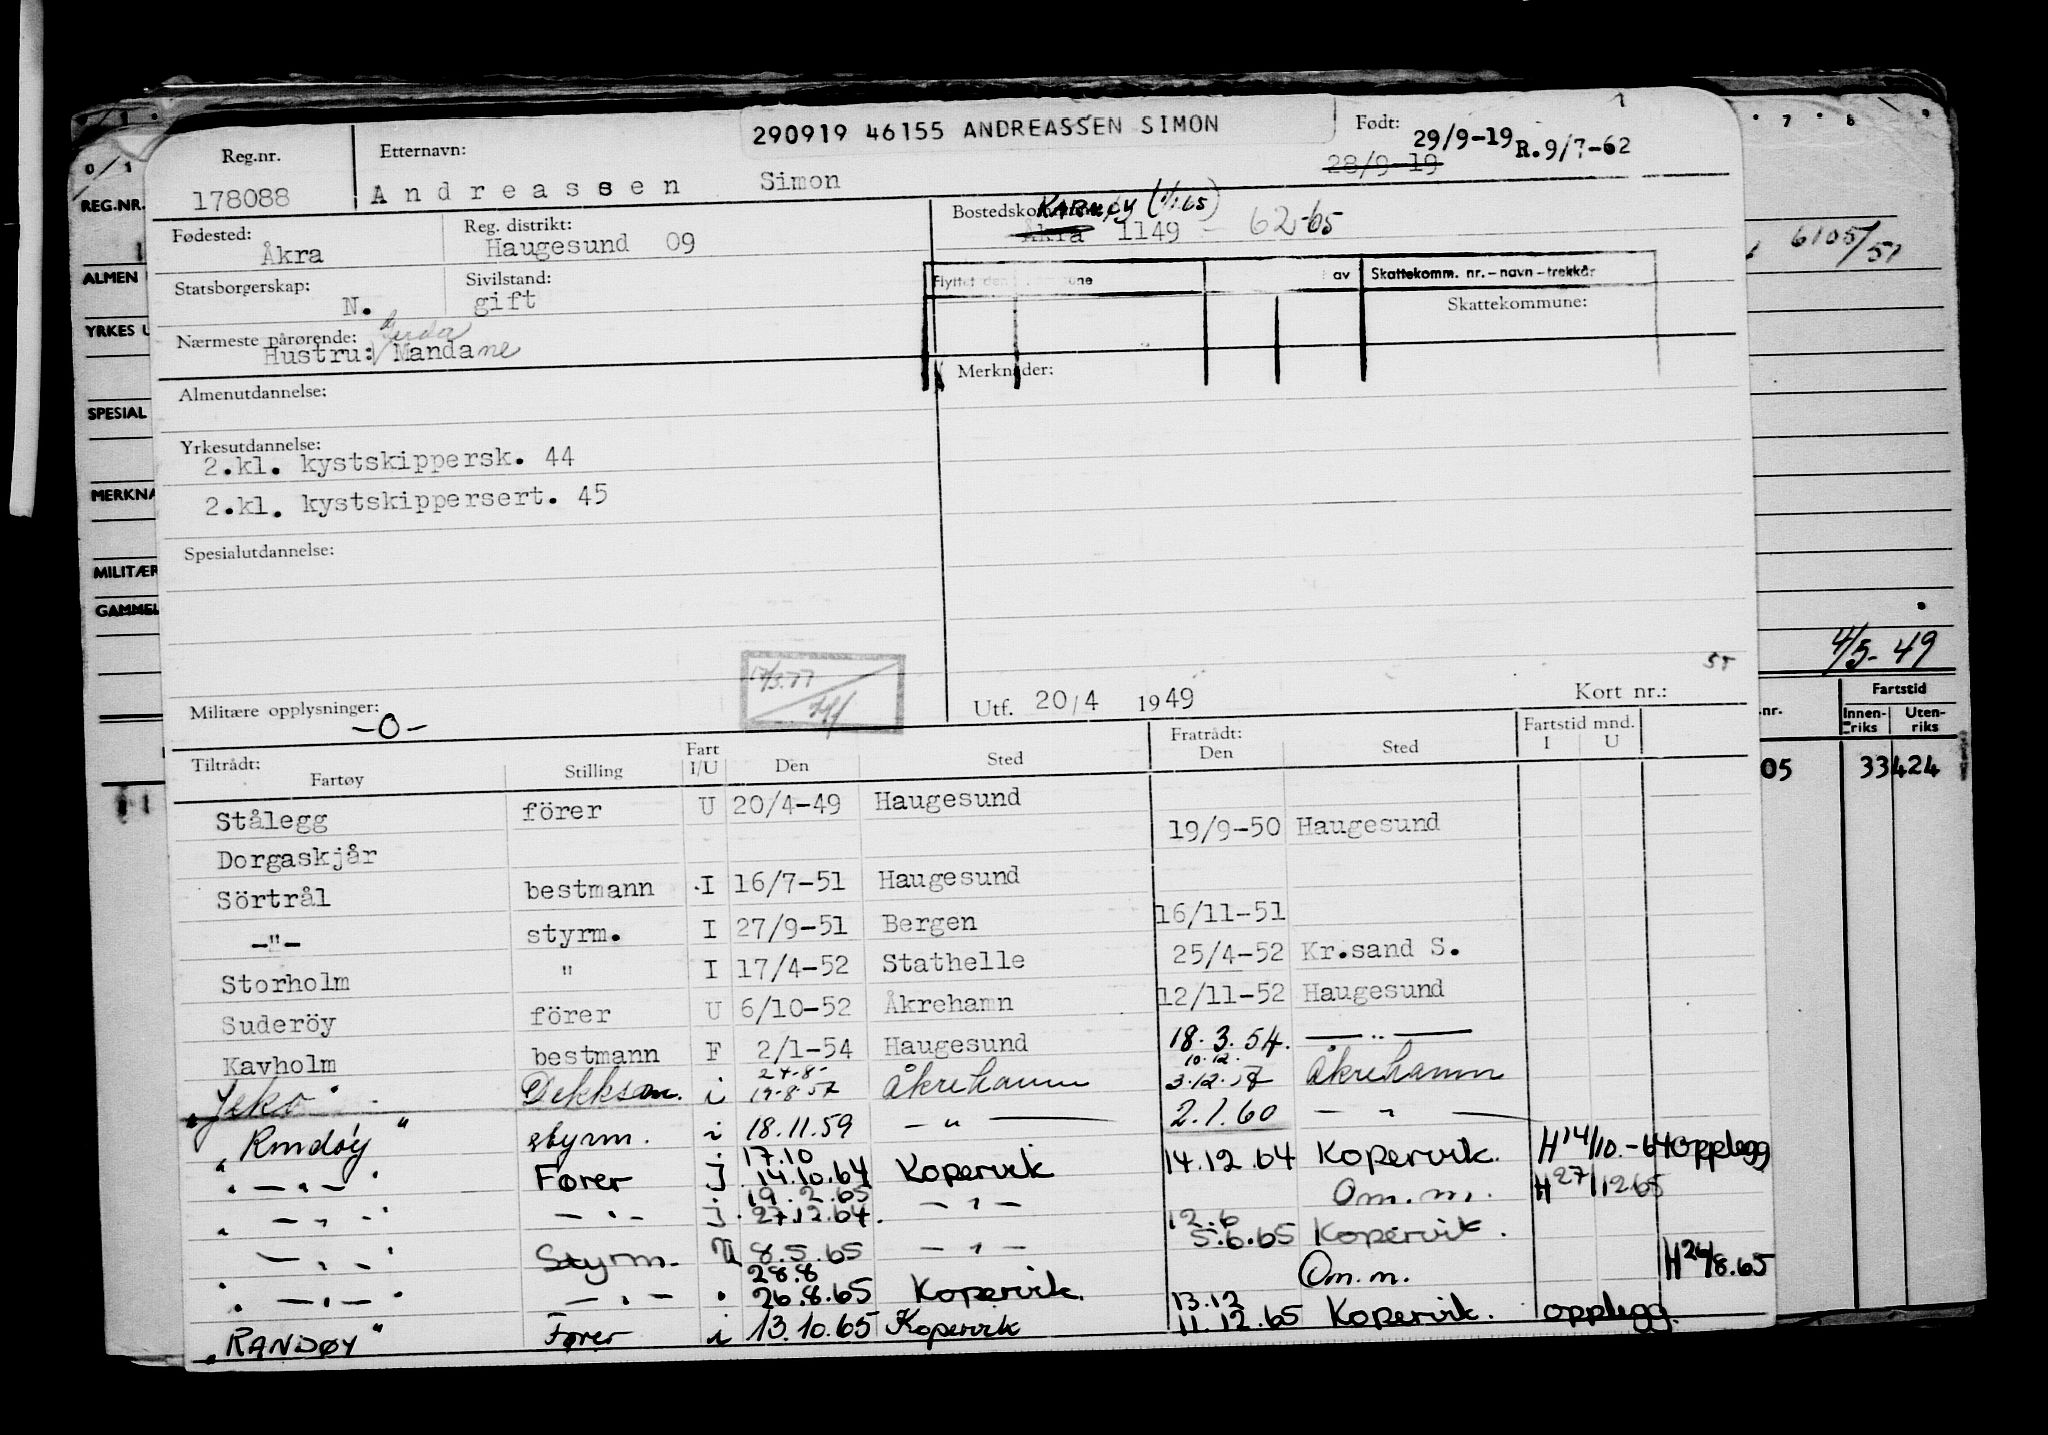 290919 46155 ANDREASSEN SIMON
Født: 29/9-19 R.9/7-62
28/9-19
Reg.nr. 178088
Etternavn: Andreassen Simon
Fødested: Åkra
Reg. distrikt: Haugesund 09
Bostedskommune: KARMØY (1/1 65)
Åkra 1149 - 62-65
Statsborgerskap: N.
Sivilstand: gift
Flyttet den av Skattekomm. nr.-navn-trekkår
Skattekommune:
Nærmeste pårørende:
Hustru: Mandane
Merknader:
Almenutdannelse:
Yrkesutdannelse:
2.kl. kystskippersk. 44
2.kl. kystskippersert. 45
Spesialutdannelse:
Militære opplysninger: -O-
Utf. 20/4 1949
Kort nr.:
Tiltrådt: Fartøy Stilling Fart I/U Den Sted Fratrådt: Den Sted Fartstid mnd. I U
Stålegg förer U 20/4-49 Haugesund
Dorgaskjår 19/9-50 Haugesund
Sörtrål bestmann I 16/7-51 Haugesund
-"- styrm. I 27/9-51 Bergen 16/11-51
Storholm " I 17/4-52 Stathelle 25/4-52 Kr.sand S.
Suderöy förer U 6/10-52 Åkrehamn 12/11-52 Haugesund
Kavholm bestmann F 2/1-54 Haugesund 18.3.54. —"—
"Jeko" Dekksm. i 24-8- 19-8-57 Åkrehamn 10.12. 3.12.57 Åkrehamn
"Randøy" styrm. i 18.11.59 —"— 2.1.60 —"—
"-"-" Fører i 17.10 14.10.64 Kopervik 14.12.64 Kopervik. H14/10.-64 opplegg
"-"-" -"- i 19.2.65 27.12.64. -"- Om.m. H27/12 65
-"-" Styrm. U 8.5.65 -"- 12.6 5.6.65 Kopervik.
"-"-" -"- " 28.8 26.8.65 Kopervik. Om.m. H26/8.65
"RANDØY" Fører i 13.10.65 Kopervik 13.12 11.12.65 Kopervik. opplegg.
REG.NR.
ALMEN
YRKES U
SPESIAL
MERKNA
MILITÆR
GAMMEL
6105/51
4/5-49
.nr.
Fartstid
Innenriks
Utenriks
05 33 424